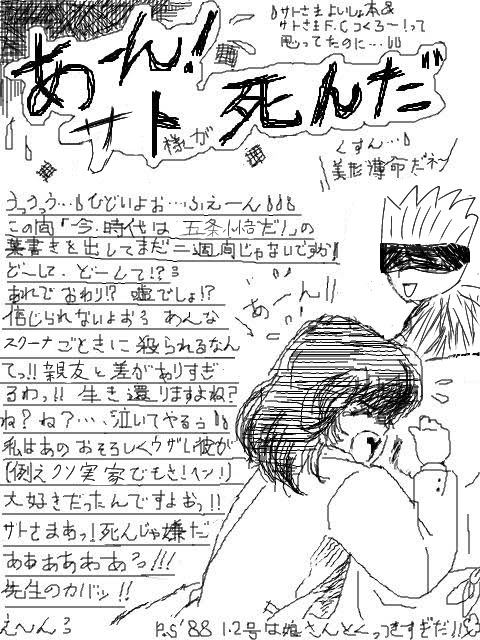 ♪サトさまよいしょ本&
サトさまF.Cつくろ〜!って
思ってたのに…
あーん!
サト様が死んだ
くすん…
美形薄命だネ
うっうっう…ひどいよお…ふえーん
この間「今、時代は五条悟だ!」の
葉書きを出してまだ二週間じゃないですか!
どーして、どーして!?
あれでおわり!?嘘でしょ!?
信じられないよおう あんな
スクーナごときに殺られるなん
てっ!!親友と差がありすぎ
るわっ!!生き還りますよね?
ね?ね?…、泣いてやるぅ
私はあのおそろしくウザい彼が
(例えクソ実家でもさ!ヘン!)
大好きだったんですよおっ!!
サトさまあっ!死んじゃ嫌だ
ああああああっ!!!
先生のカバッ!!
え〜ん
あーん!!
P.S'88 1.2号は娘さんとくっつきすぎだ!!